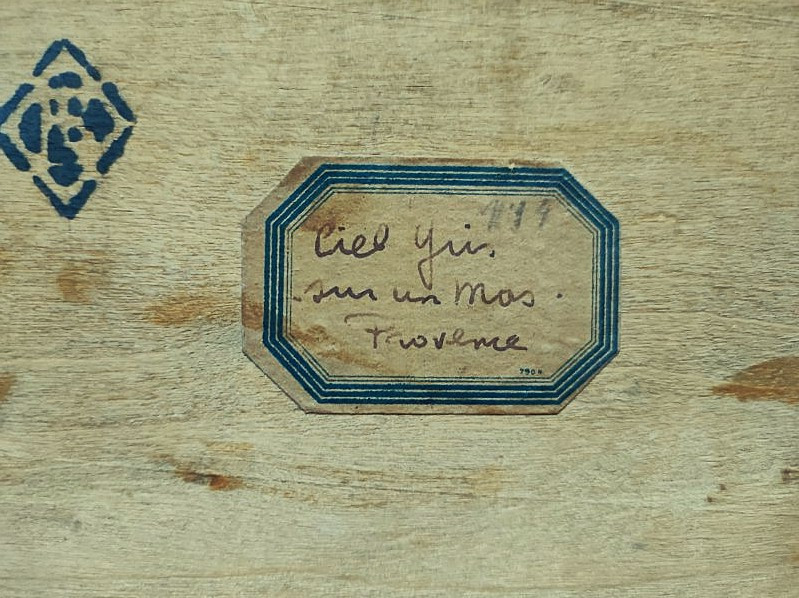 Ciel gris
sur un Mas.
Provence